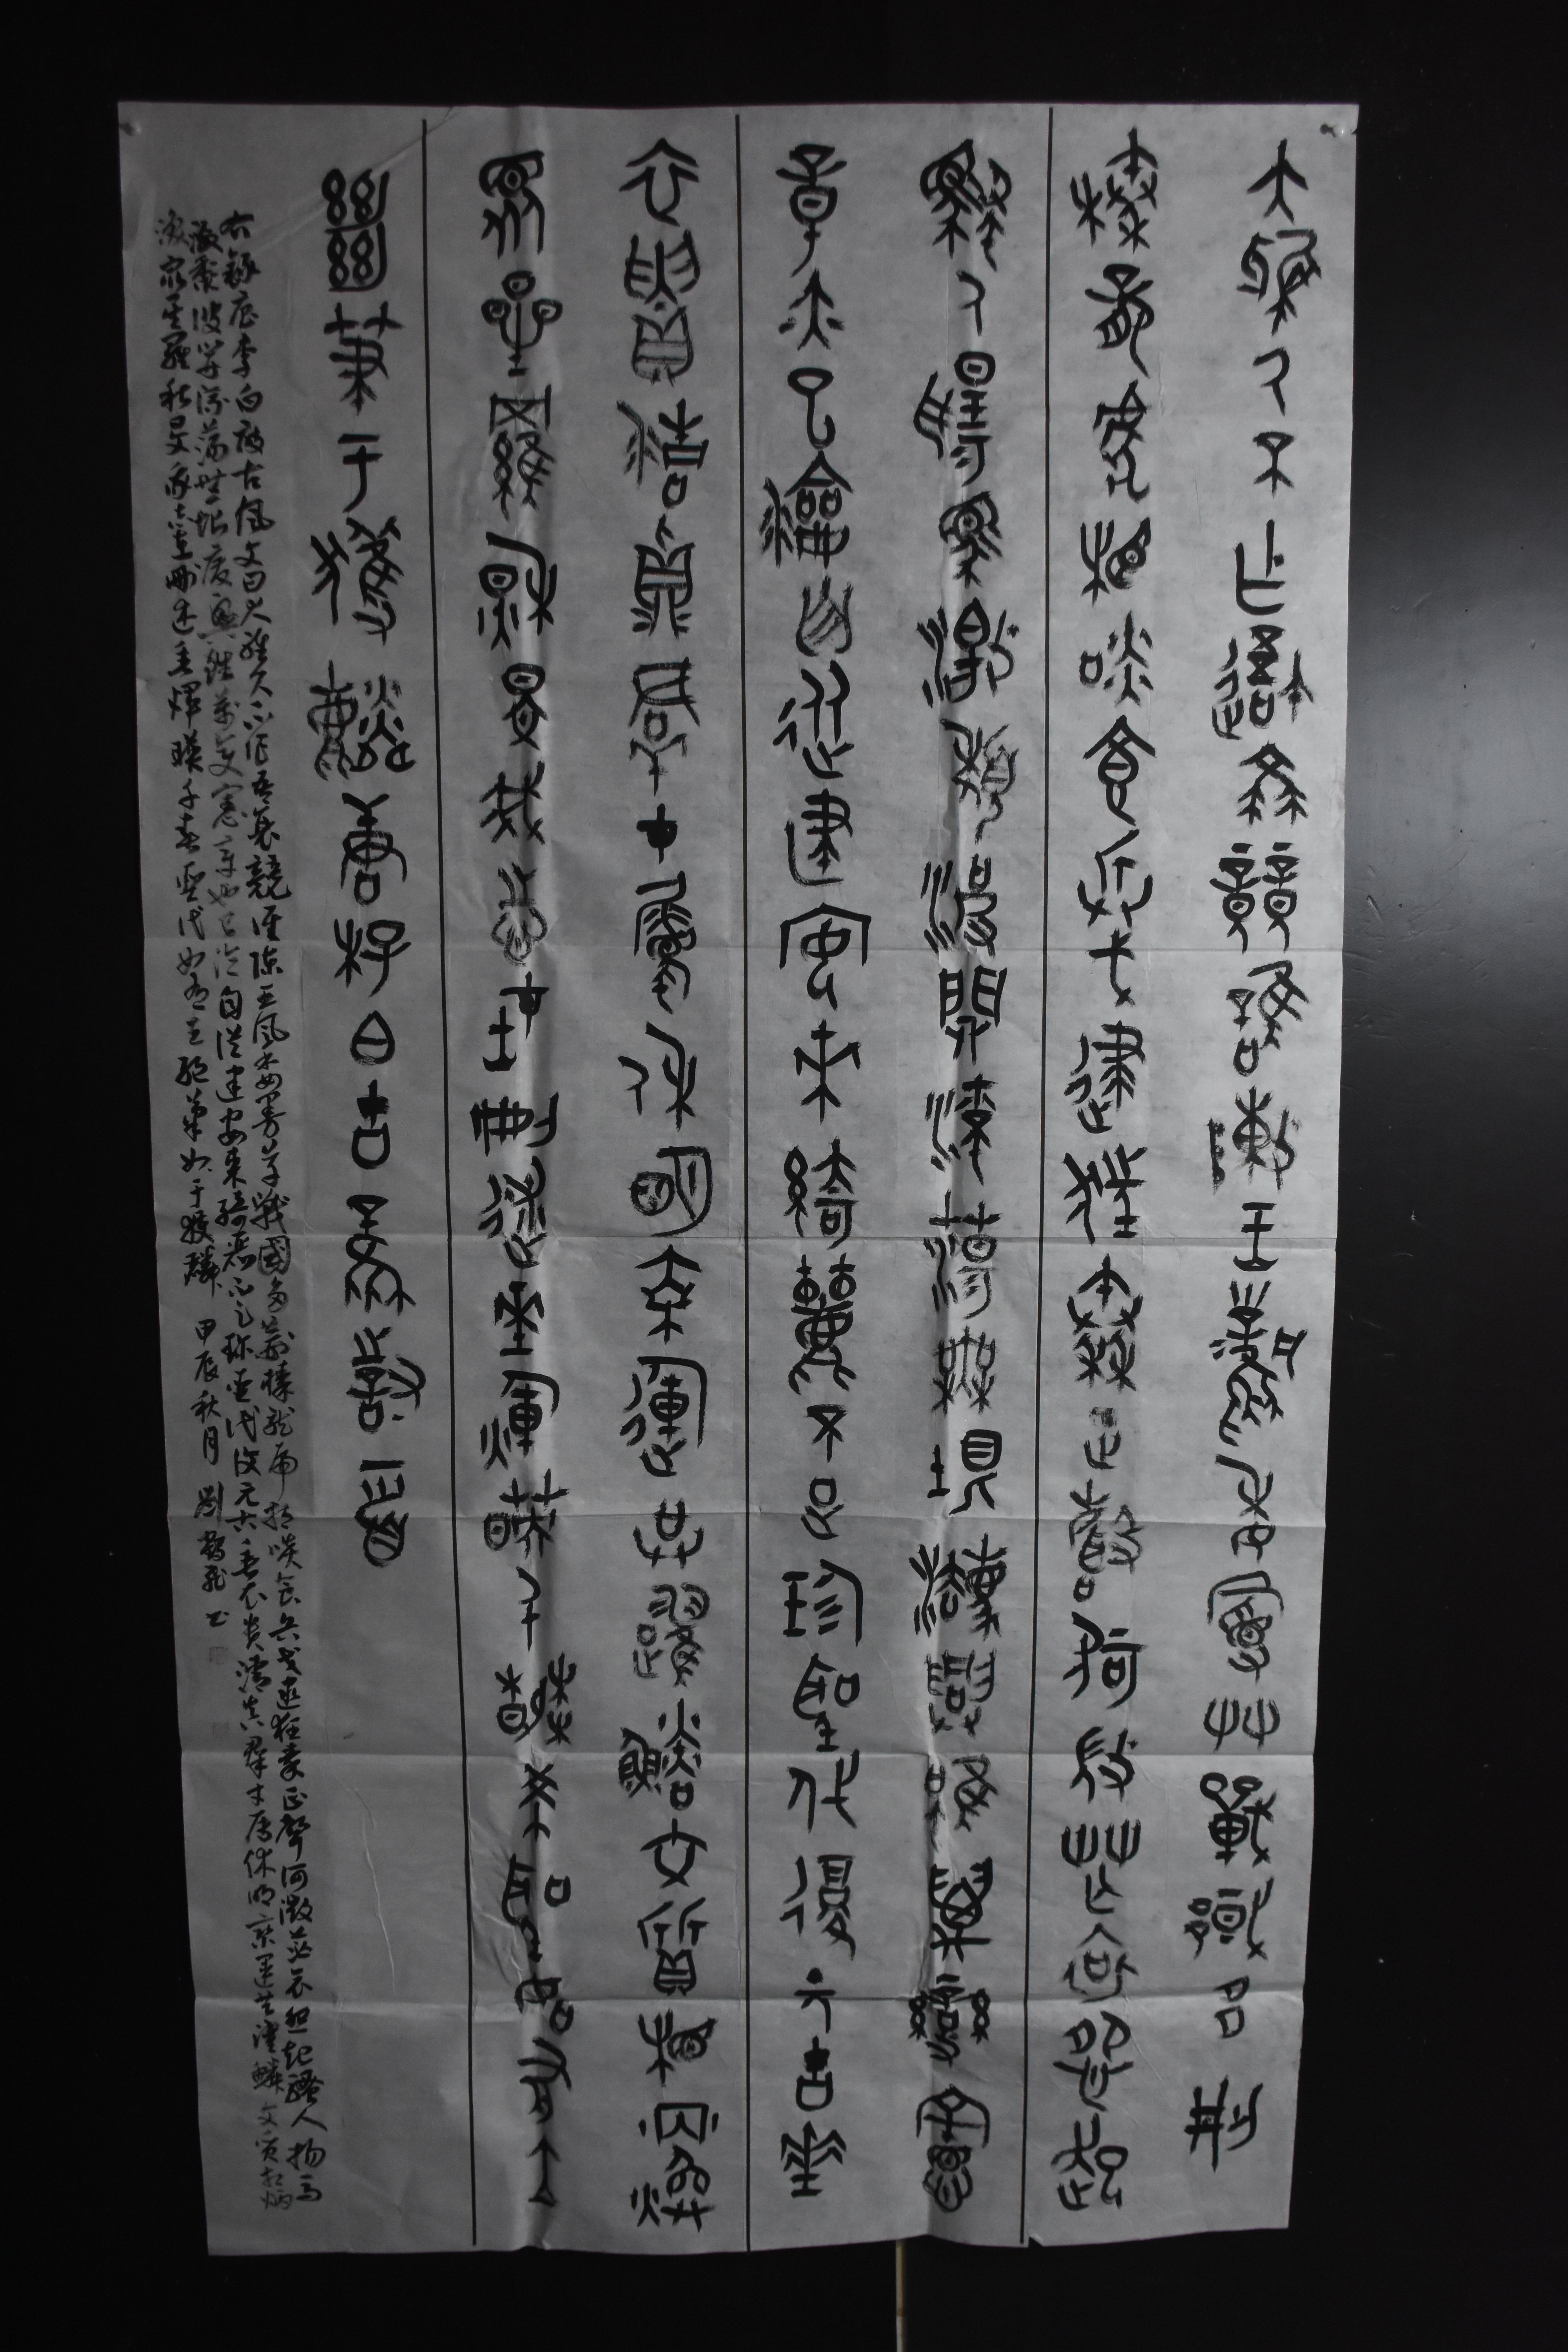 大雅久不作吾衰竟誰陳王風委蔓草戰國多荊
榛龍虎相啖食兵戈逮狂秦正聲何微茫哀怨起
騷人揚馬激頹波開流蕩無垠廢興雖萬變憲
章亦已淪自從建安來綺麗不足珍聖代復元古垂
衣貴清真群才屬休明乘運共躍鱗文質相炳煥
眾星羅秋旻我志在刪述垂輝映千春希聖如有立
絕筆于獲麟唐李白古風詩一首
右錄唐李白詩古風文曰大雅久不作吾衰競誰陳王風委蔓草戰國多荊榛龍虎相啖食兵戈逮狂秦正聲何微茫哀怨起騷人揚馬
激頹波開流蕩無垠廢興雖萬變憲章亦已淪自從建安來綺麗不足珍聖代復元古垂衣貴清真群才屬休明乘運共躍鱗文質相炳
煥眾星羅秋旻我志在刪述垂輝映千春聖代如有立絕筆如于獲麟 甲辰秋月 劉龍書